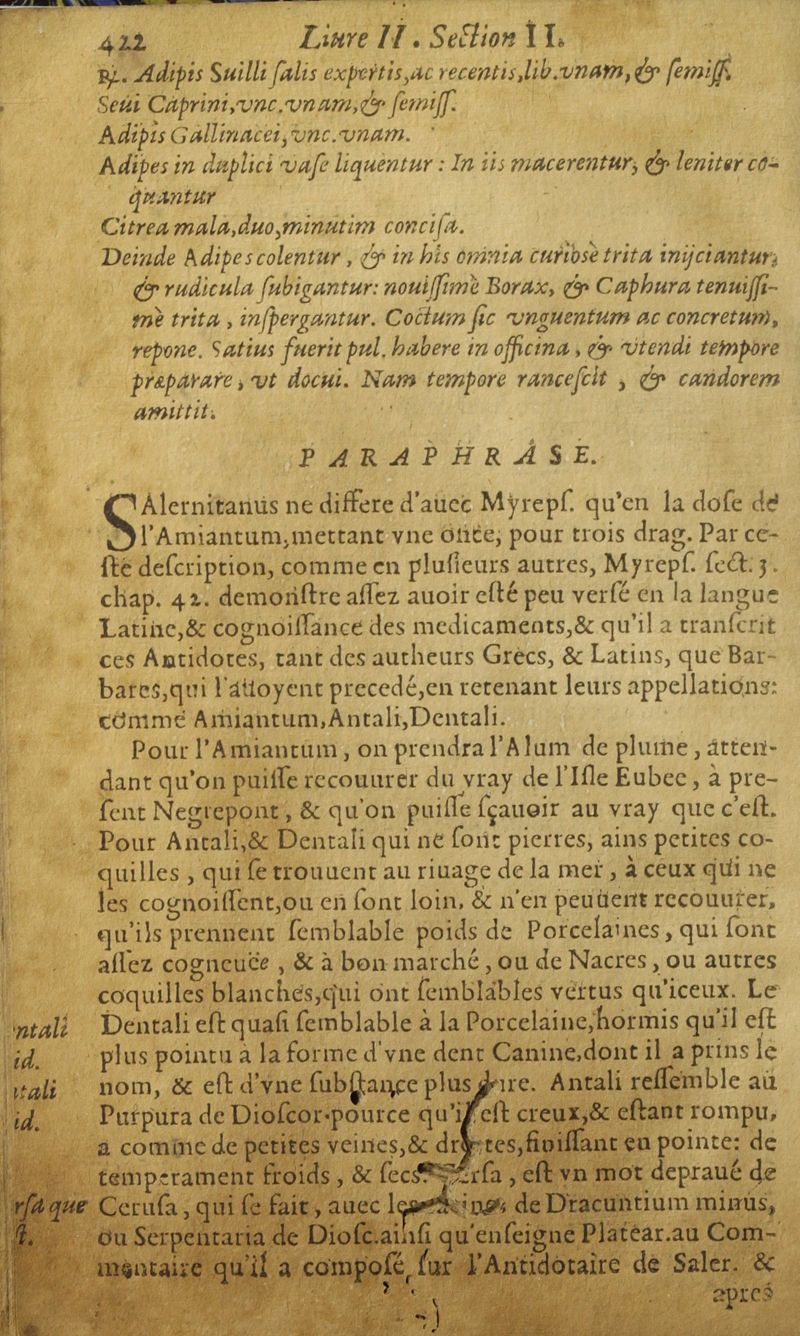 422 Liure II. Section II.
℞. Adipis Suilli salis expertis, ac recentis, lib. vnam, & semiss.
Seui Caprini, vnc. vnam, & semiss.
Adipis Gallinacei, vnc. vnam.
Adipes in duplici vase liquentur : In iis macerentur, & leniter co-
quantur
Citrea mala, duo, minutim concisa.
Deinde Adipes colentur, & in his omnia curiosè trita inijciantur;
& rudicula subigantur: nouissimè Borax, & Caphura tenuissi-
mè trita, inspergantur. Coctum sic vnguentum ac concretum,
repone. Satius fuerit pul. habere in officina, & vtendi tempore
præparare, vt docui. Nam tempore rancescit, & candorem
amittit.
PARAPHRASE.
SAlernitanus ne differe d'auec Myreps. qu'en la dose de
l'Amiantum, mettant vne once, pour trois drag. Par ce-
ste description, comme en plusieurs autres, Myreps. sect. 3.
chap. 42. demonstre assez auoir esté peu versé en la langue
Latine, & cognoissance des medicaments, & qu'il a transcrit
ces Antidotes, tant des autheurs Grecs, & Latins, que Bar-
bares, qui l'auoyent precedé, en retenant leurs appellations:
comme Amiantum, Antali, Dentali.
Pour l'Amiantum, on prendra l'Alum de plume, atten-
dant qu'on puisse recouurer du vray de l'Isle Eubee, à pre-
sent Negrepont, & qu'on puisse sçauoir au vray que c'est.
Pour Antali, & Dentali qui ne sont pierres, ains petites co-
quilles, qui se trouuent au riuage de la mer, à ceux qui ne
les cognoissent, ou en sont loin, & n'en peuuent recouurer,
qu'ils prennent semblable poids de Porcelaines, qui sont
assez cogneuës, & à bon marché, ou de Nacres, ou autres
coquilles blanches, qui ont semblables vertus qu'iceux. Le
ntali Dentali est quasi semblable à la Porcelaine, hormis qu'il est
id. plus pointu a la forme d'vne dent Canine, dont il a prins le
tali nom, & est d'vne substance plus Antali ressemble au
id. Purpura de Dioscor. pource qu'il est creux, & estant rompu,
a comme de petites veines, & finissant en pointe: de
temperament froids, & secs. est vn mot depraué de
rsa que Cerusa, qui se fait, auec les de Dracuntium minus,
ou Serpentaria de Diosc. ainsi qu'enseigne Platear. au Com-
mentaire qu'il a composé, sur l'Antidotaire de Saler. &
apres